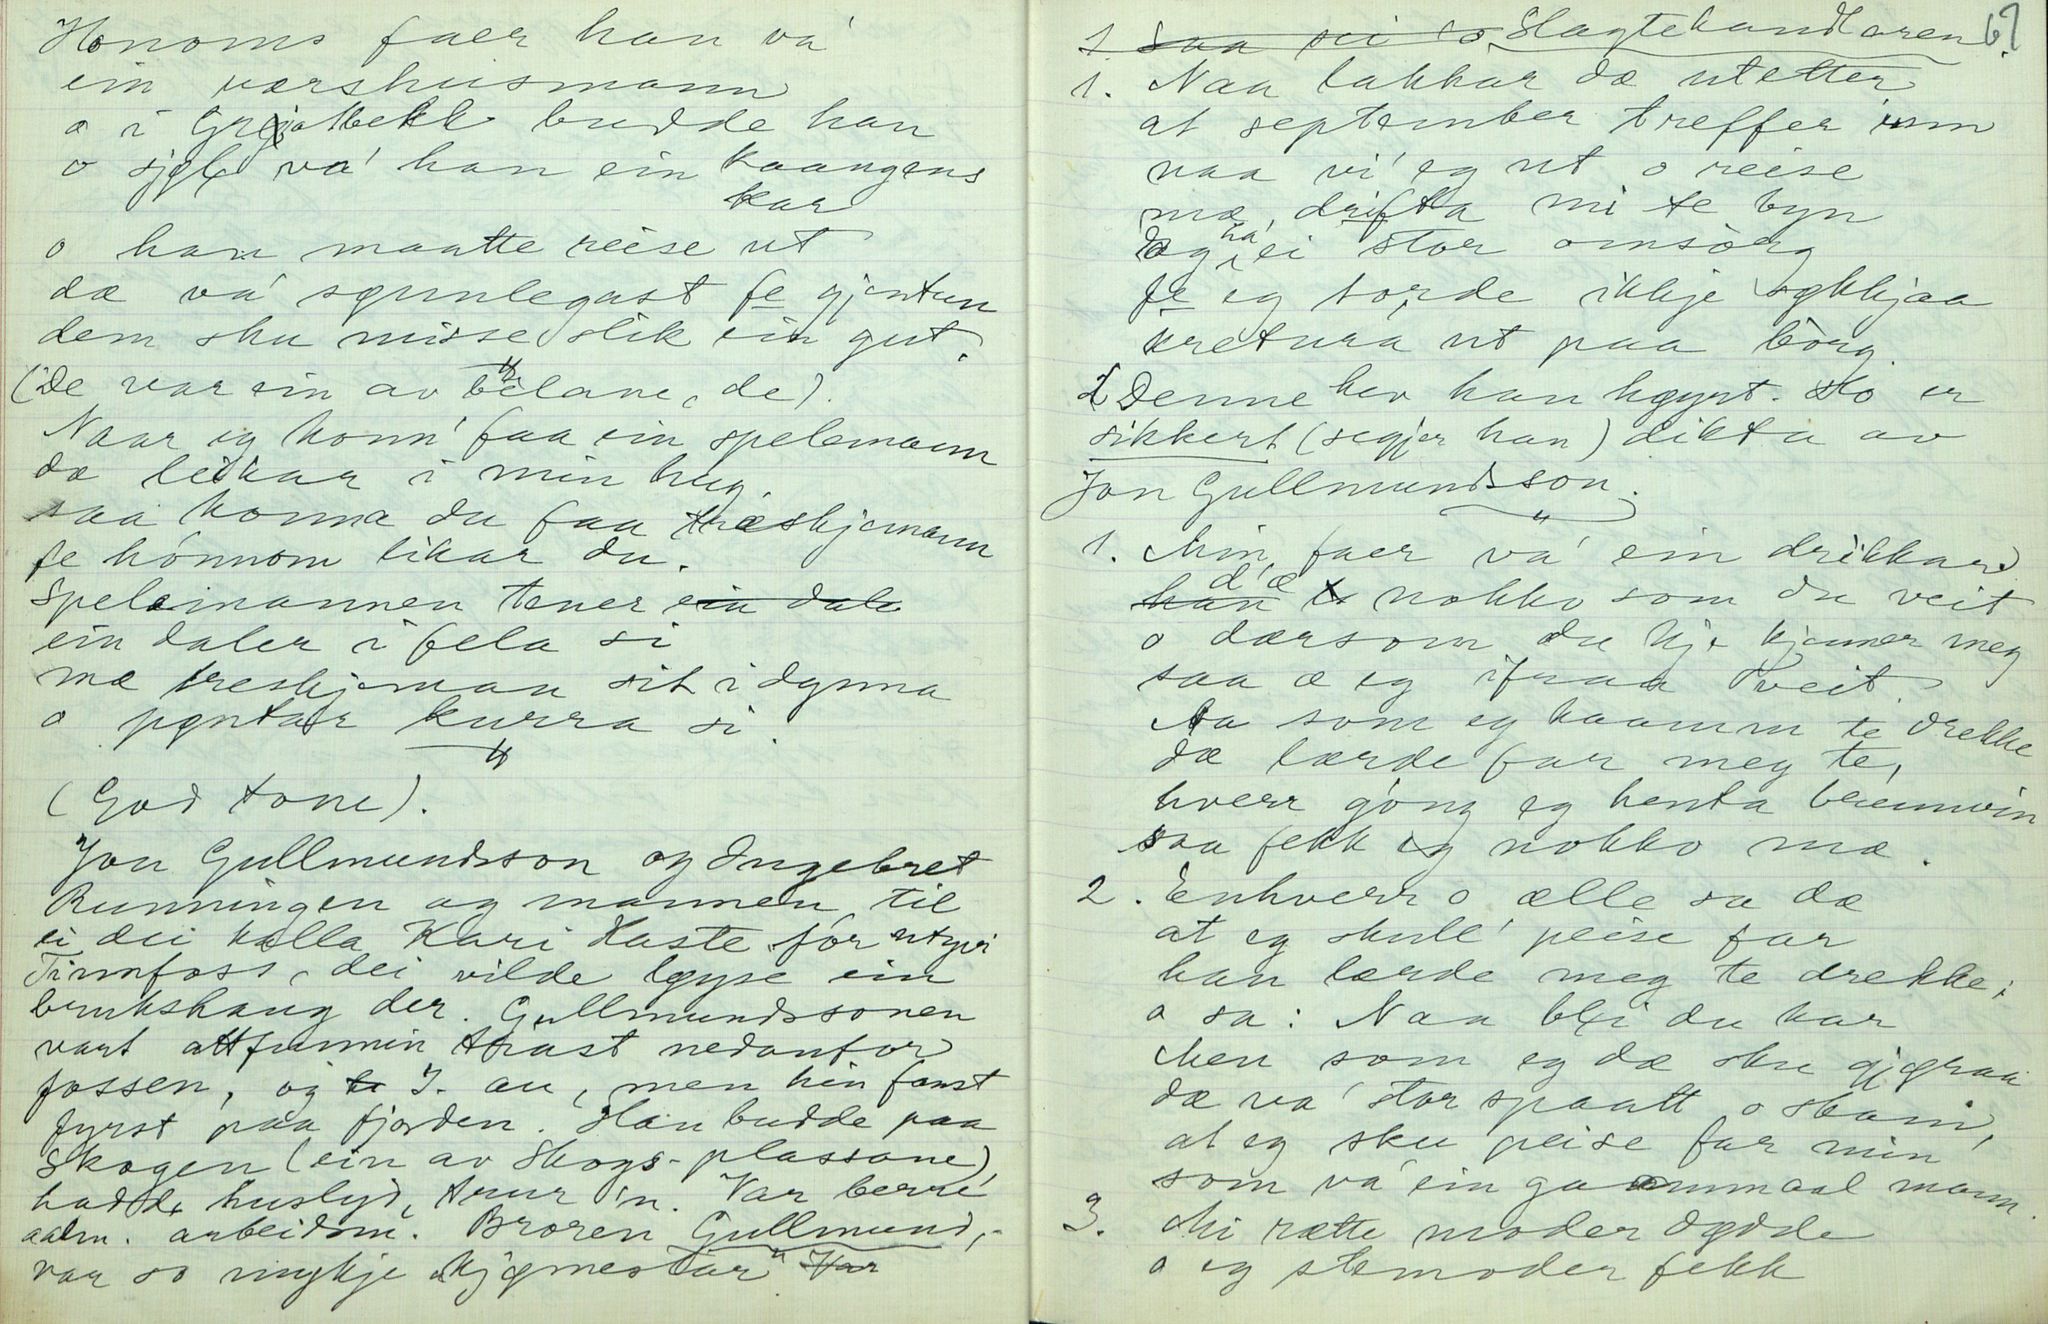 Honoms faer han va'
ein værshusmann
o i Grjotbekk budde han
o sjølv va' han ein kaangens
kar
o han maatte reise ut
dæ va' sqrmlegast fe gjentun
dem sku misse slik ein gut.
(De var ein av belane, de).
Naar eg konn' faa ein spelemann
dæ leikar i min hug,
saa konna du faa træskjemann
fe hónnom likar du.
Spelemannen tener ein dale
ein daler i fela si
mæ treskjeman sit i dynna
o pøntar kurra si.
(God tone).
Jon Gullmundsson og Ingebret
Runningen og mannen til
ei dei kalla Kari Haste for utyvi
Tinnfoss, dei vilde løyse ein
brukshaug der. Gullmundssonen
vart attfunnin trast nedanfor
fossen, og I. au, men hin fanst
fyrst paa fjorden. Han budde paa
Skogen (ein av Skogs-plassane),
hadde huslyd, trur 'n. Var berre
aalm. arbeidsm. Broren Gullmund,-
var so mykje "kjømestar" Var
67
1 Saa sei so Slagtehandlaren.
1. Naa lakkar dæ utetter
at september treffer inn
naa vi' eg ut o reise
mæ drifta mi te byn
Eg ha' ei stor omsòrg
fe eg torde ikkje søkkjaa
kretura ut paa bòrg.
2 Denne hev han høyrt. Ho er
sikkert (segjer han) dikta av
Jon Gullmundsson.
1. Min faer va' ein drikkar
han d'æ nokko som du veit
o dærsom du kje kjenner meg
saa æ eg ifraa Tveit.
Aa som eg kaamm te drekke
dæ lærde far meg te,
hverr gong eg henta brennvin
saa fekk eg nokko mæ.
2. Enhverr o ælle sa dæ
at eg skull' peise far
han lærde meg te drekke;
o sa: Naa bli du kar
Men som eg dæ sku gjøraa
dæ va' stor spaatt o skam,
at eg sku peise far min
som va' ein gaammaal mann.
3. Mi rætte moder døde
o eg stemoder fekk